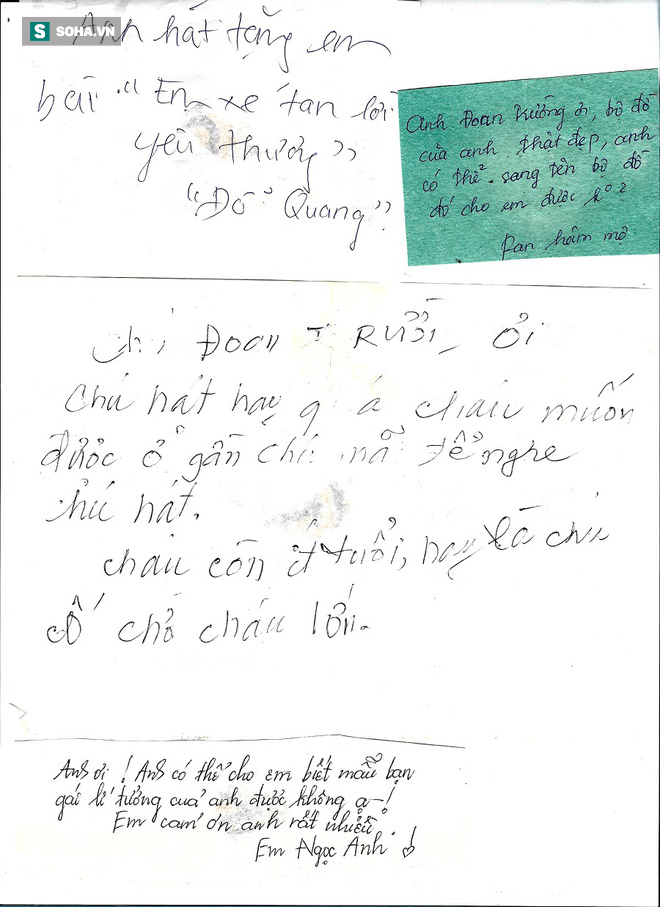 S SOHA.VN
Anh hát tặng em
bài "Em xé tan lời
yêu thương"
"Đỗ Quang"
Anh Đoan Trường ơi, bộ đồ
của anh thật đẹp, anh
có thể sang tên bộ đồ
đó cho em được k° ?
Fan hâm mộ
Chú ĐOAN TRƯỜNG ơi
Chú hát hay quá cháu muốn
được ở gần chú mã để nghe
chú hát.
cháu còn ít tuổi, hay là chú
cố chờ cháu lớn.
Anh ơi ! Anh có thể cho em biết mẫu bạn
gái lí tưởng của anh được không ạ !
Em cảm ơn anh rất nhiều.
Em Ngọc Anh